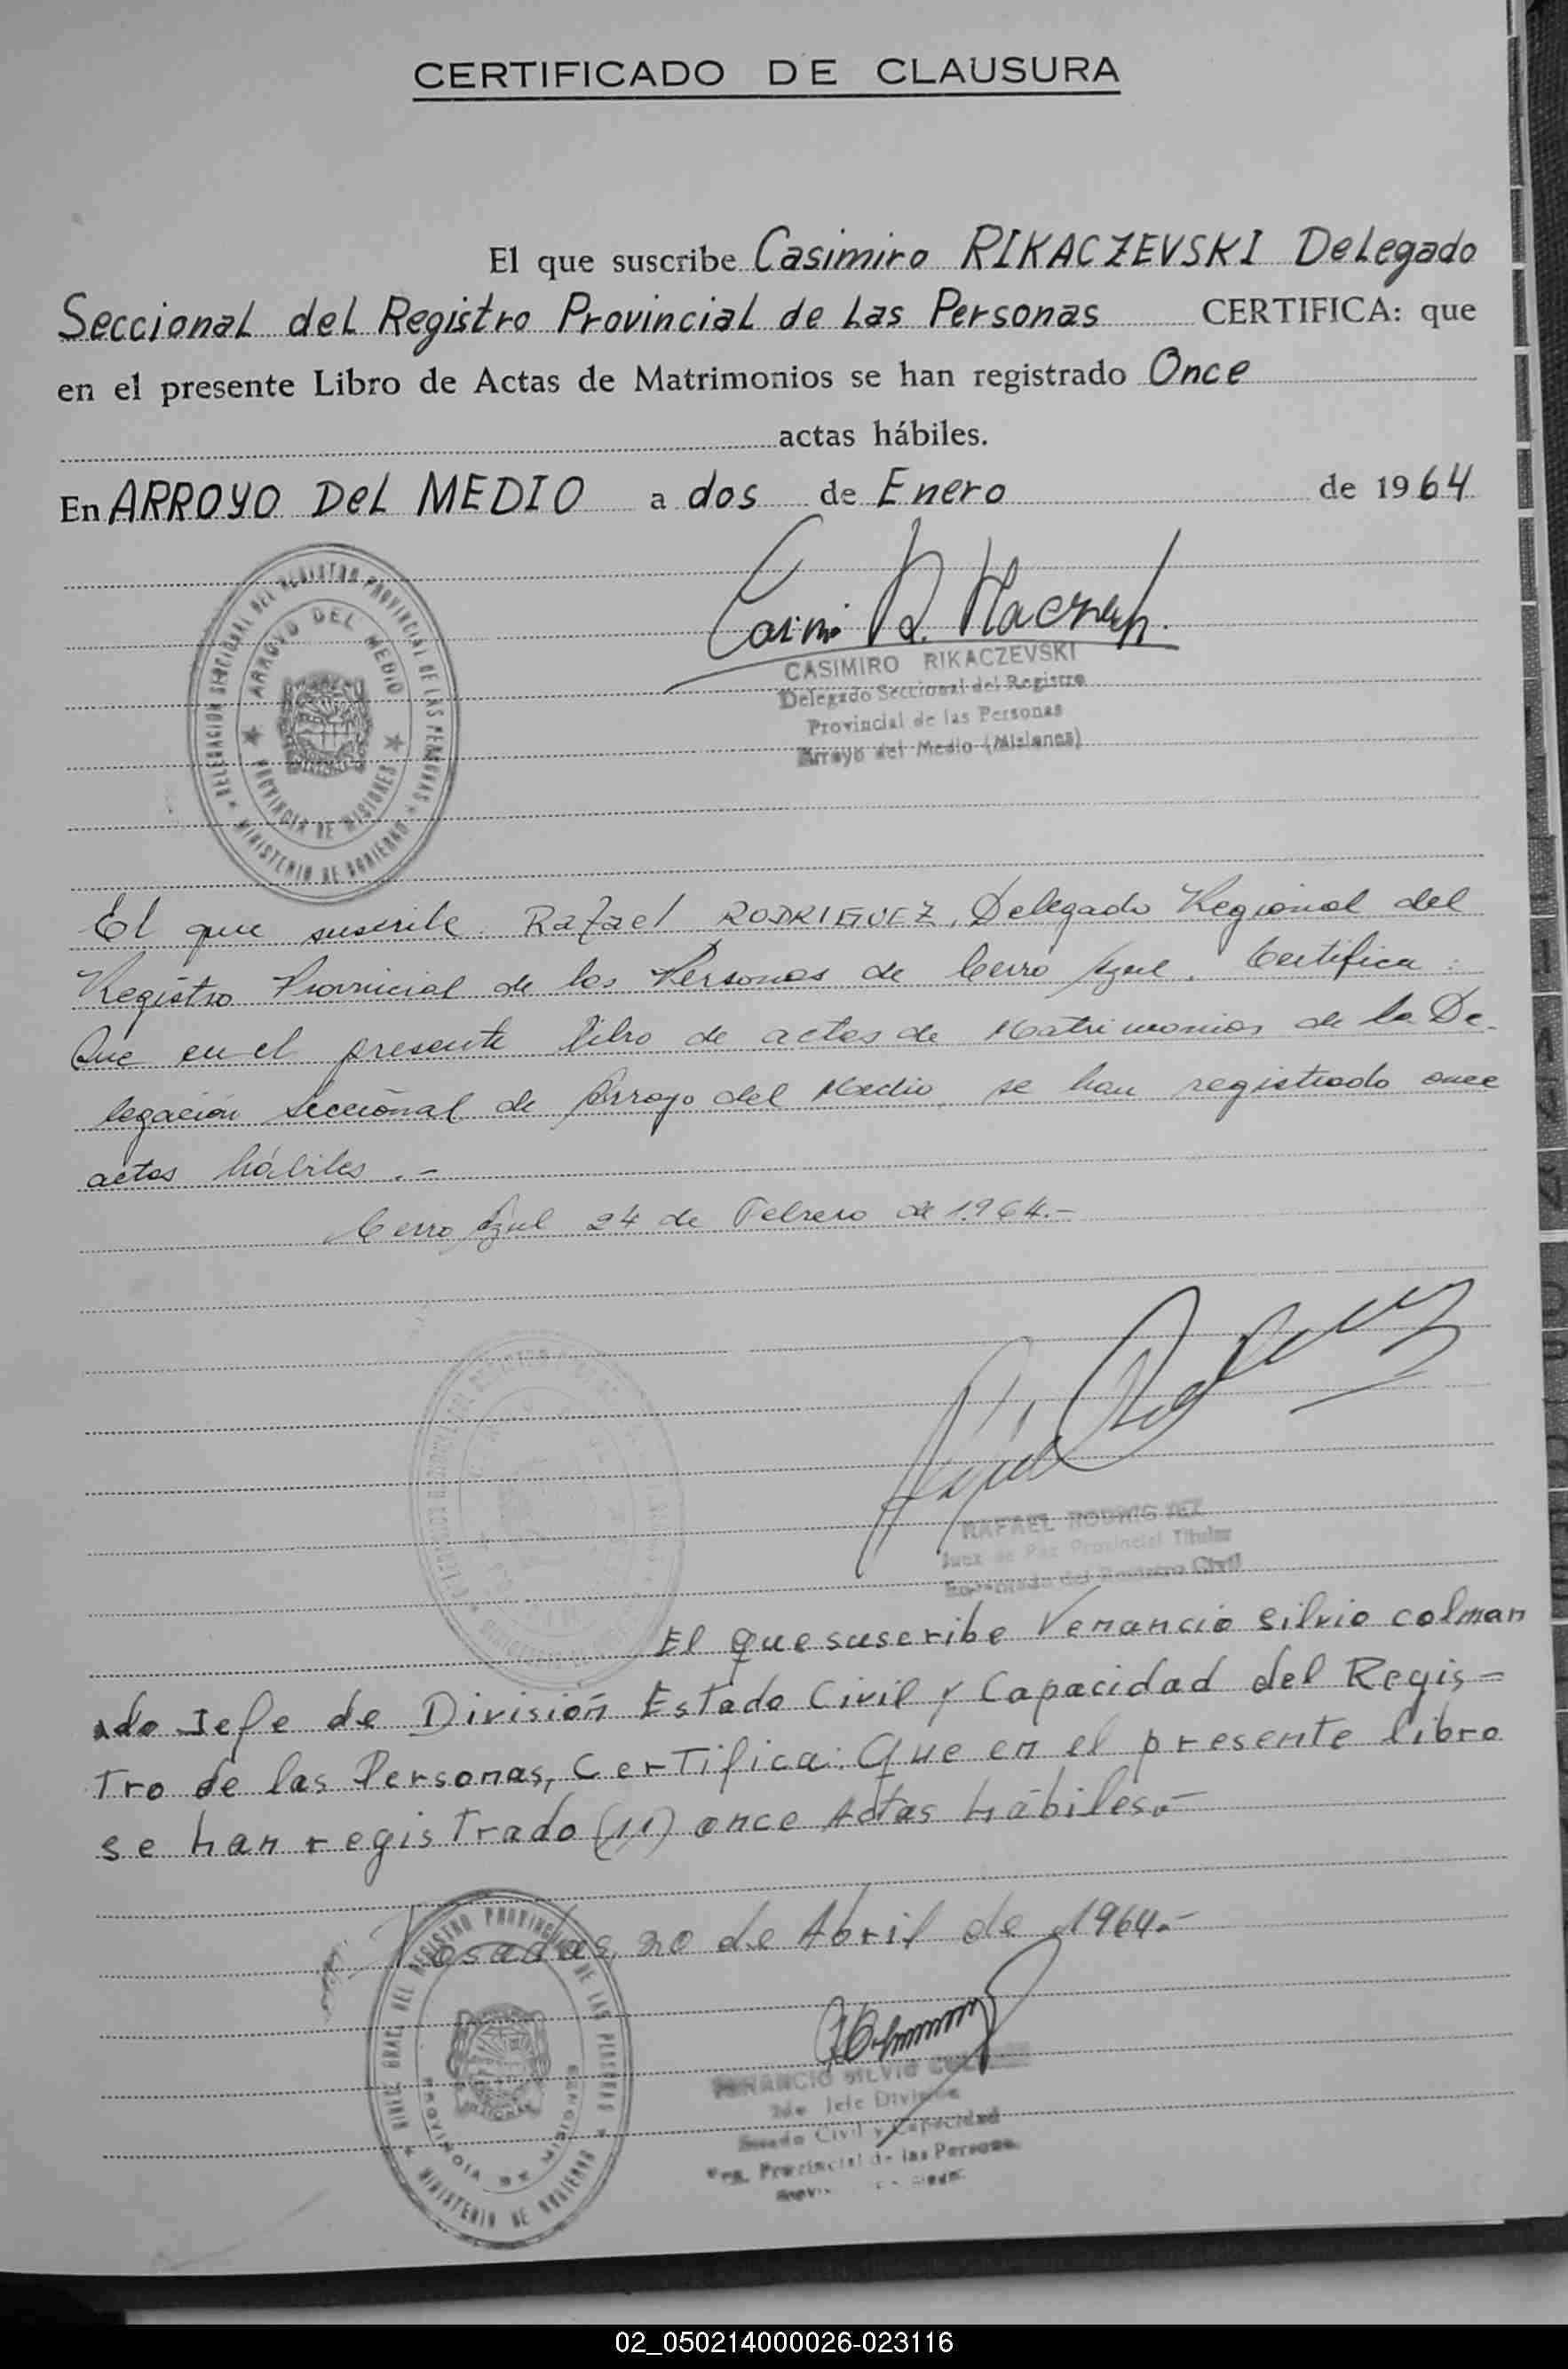 CERTIFICADO DE CLAUSURA
El que suscribe Casimiro RIKACZEVSKI Delegado
Seccional del Registro Provincial de las Personas CERTIFICA: que
en el presente Libro de Actas de Matrimonios se han registrado Once
actas hábiles.
En ARROYO DEL MEDIO a dos de Enero de 1964
DELEGACION SECCIONAL DEL REGISTRO PROVINCIAL DE LAS PERSONAS
★ MINISTERIO DE GOBIERNO ★
ARROYO DEL MEDIO
★ PROVINCIA DE MISIONES ★
CASIMIRO RIKACZEVSKI
Delegado Seccional del Registro
Provincial de las Personas
Arroyo del Medio (Misiones)
El que suscribe Rafael RODRIGUEZ, Delegado Regional del
Registro Provincial de las Personas de Cerro Azul. Certifica:
Que en el presente libro de actas de Matrimonios de la De-
legación Seccional de Arroyo del Medio, se han registrado once
actas hábiles.-
Cerro Azul 24 de Febrero de 1.964.-
RAFAEL RODRIGUEZ
Juez de Paz Provincial Titular
Encargado del Registro Civil
El que suscribe Venancio Silvio Colman
2do Jefe de División Estado Civil y Capacidad del Regis=
tro de las Personas, Certifica: Que en el presente libro
se han registrado (11) once Actas hábiles.-
Posadas, 20 de Abril de 1964.-
DIREC. GRAL. DEL REGISTRO PROVINCIAL DE LAS PERSONAS
★ MINISTERIO DE GOBIERNO ★
PROVINCIA DE MISIONES
VENANCIO SILVIO COLMAN
2do Jefe División
Estado Civil y Capacidad
Reg. Provincial de las Personas
02_050214000026-023116